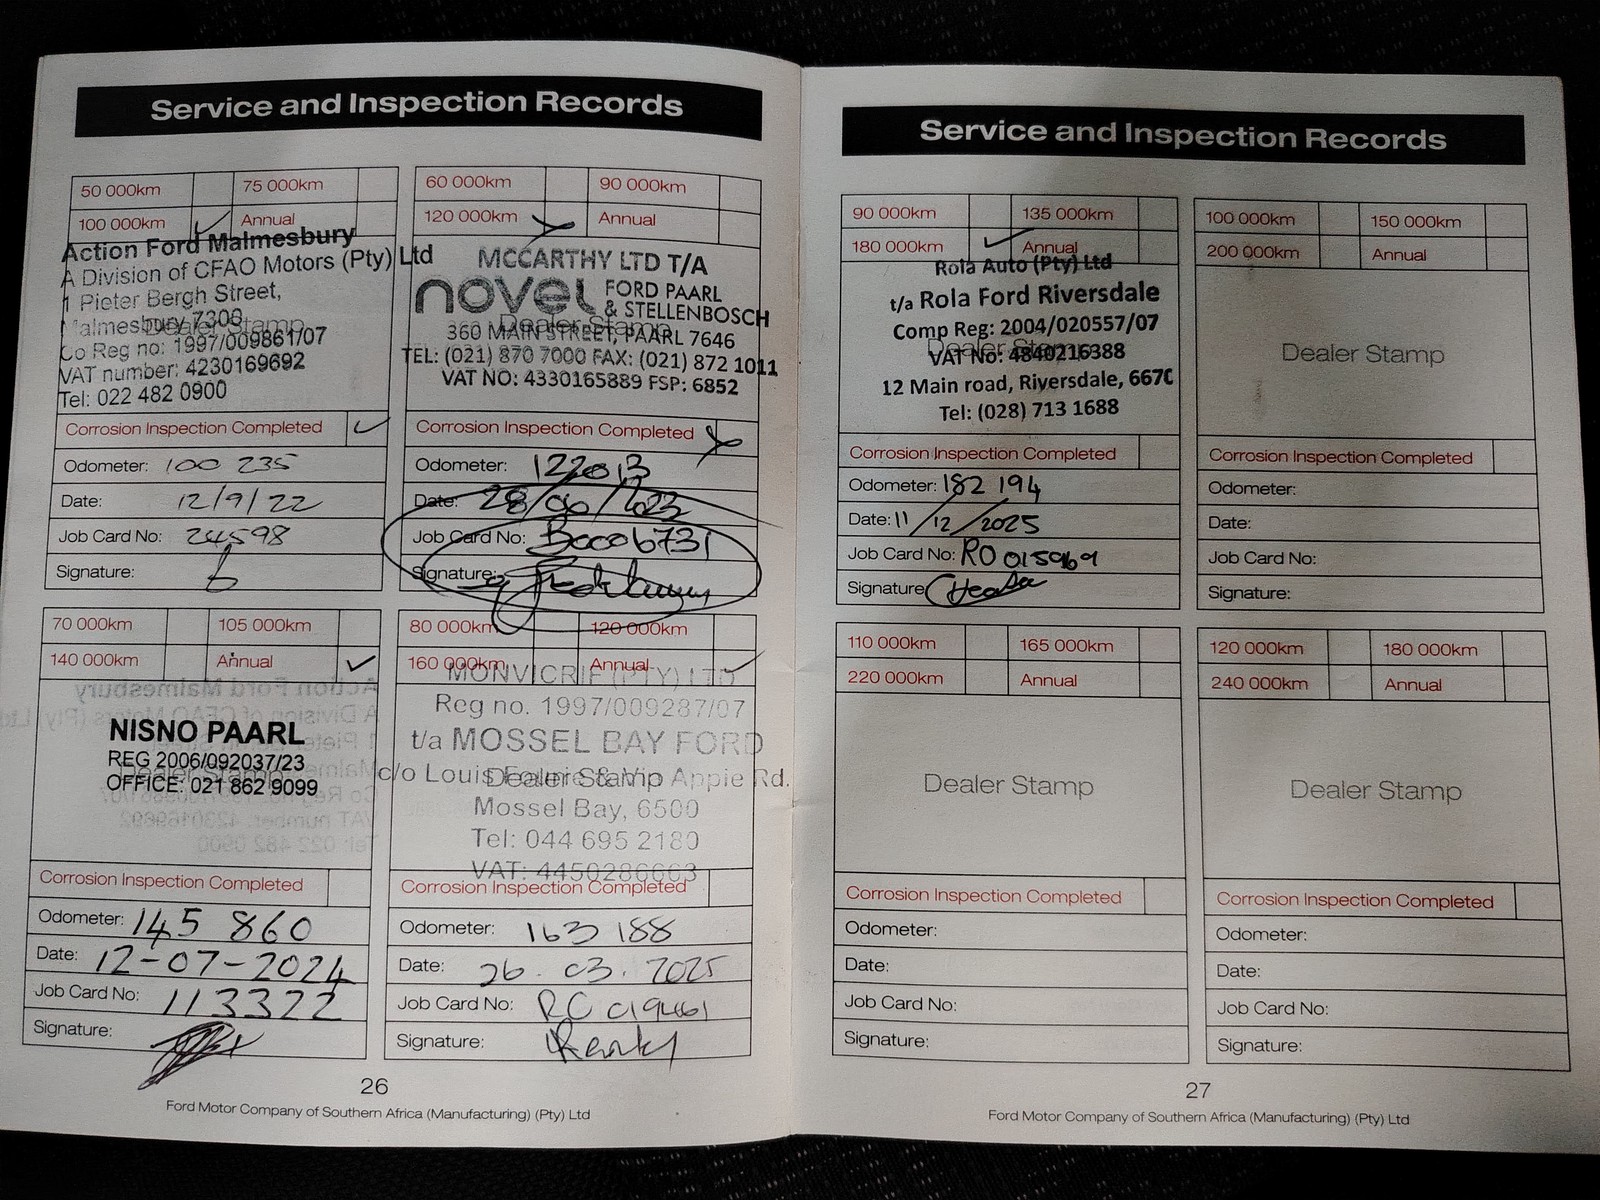 Service and Inspection Records
50 000km 75 000km
100 000km Annual
Action Ford Malmesbury
A Division of CFAO Motors (Pty) Ltd
1 Pieter Bergh Street,
Malmesbury 7308
Dealer Stamp
Co Reg no: 1997/009861/07
VAT number: 4230169692
Tel: 022 482 0900
Corrosion Inspection Completed
Odometer: 100 235
Date: 12/9/22
Job Card No: 24598
Signature:
60 000km 90 000km
120 000km Annual
MCCARTHY LTD T/A
novel FORD PAARL
& STELLENBOSCH
Dealer Stamp
360 MAIN STREET, PAARL 7646
TEL: (021) 870 7000 FAX: (021) 872 1011
VAT NO: 4330165889 FSP: 6852
Corrosion Inspection Completed
Odometer: 122013
Date: 28/06/2023
Job Card No: B0006731
Signature:
70 000km 105 000km
140 000km Annual
NISNO PAARL
REG 2006/092037/23
Dealer Stamp
OFFICE: 021 862 9099
Corrosion Inspection Completed
Odometer: 145 860
Date: 12-07-2024
Job Card No: 113322
Signature:
80 000km 120 000km
160 000km Annual
MONVICRIF (PTY) LTD
Reg no. 1997/009287/07
t/a MOSSEL BAY FORD
c/o Louis Fourie & Appie Rd.
Dealer Stamp
Mossel Bay, 6500
Tel: 044 695 2180
VAT: 4450286663
Corrosion Inspection Completed
Odometer: 163 188
Date: 26.03.2025
Job Card No: RO 019461
Signature:
26
Ford Motor Company of Southern Africa (Manufacturing) (Pty) Ltd
Service and Inspection Records
90 000km 135 000km
180 000km Annual
Rola Auto (Pty) Ltd
t/a Rola Ford Riversdale
Comp Reg: 2004/020557/07
Dealer Stamp
VAT No: 4840216388
12 Main road, Riversdale, 6670
Tel: (028) 713 1688
Corrosion Inspection Completed
Odometer: 182 194
Date: 11/12/2025
Job Card No: RO 015969
Signature
100 000km 150 000km
200 000km Annual
Dealer Stamp
Corrosion Inspection Completed
Odometer:
Date:
Job Card No:
Signature:
110 000km 165 000km
220 000km Annual
Dealer Stamp
Corrosion Inspection Completed
Odometer:
Date:
Job Card No:
Signature:
120 000km 180 000km
240 000km Annual
Dealer Stamp
Corrosion Inspection Completed
Odometer:
Date:
Job Card No:
Signature:
27
Ford Motor Company of Southern Africa (Manufacturing) (Pty) Ltd